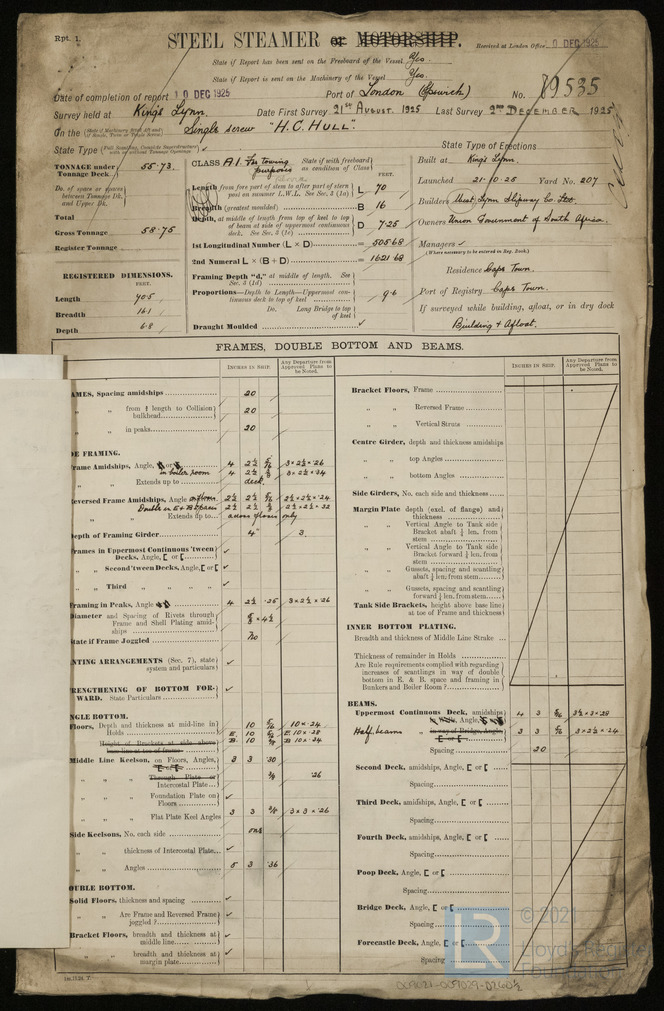 Rpt. 1.
STEEL STEAMER or MOTORSHIP.
Received at London Office 10 DEC 1925
State if Report has been sent on the Freeboard of the Vessel Yes.
State if Report is sent on the Machinery of the Vessel Yes.
Date of completion of report 10 DEC 1925 Port of London (Ipswich) No. 19535
Survey held at King's Lynn. Date First Survey 21st AUGUST. 1925 Last Survey 2nd DECEMBER 1925
On the Single screw "H.C. HULL".
State Type
State Type of Erections
TONNAGE under Tonnage Deck 55.73.
CLASS A1. For towing purposes State if with freeboard as condition of Class
Built at King's Lynn.
Do. of space or spaces between Tonnage Dk. and Upper Dk.
FEET.
Length from fore part of stem to after part of stern post on summer L.W.L. See Sec. 3 (1a) L 70
Launched 21.10.25 Yard No. 207
Total
Breadth (greatest moulded) B 16
Builders West Lynn Slipway Co Ltd.
Gross Tonnage 58.75
Depth, at middle of length from top of keel to top of beam at side of uppermost continuous deck. See Sec. 3 (1c) D 7.25
Owners Union Government of South Africa.
Register Tonnage
1st Longitudinal Number (L × D) = 505.68
Managers
(Where necessary to be entered in Reg. Book.)
2nd Numeral L × (B + D) = 1621.68
REGISTERED DIMENSIONS.
FEET.
Framing Depth "d," at middle of length. See Sec. 3 (1d)
Residence Cape Town.
Length 70.5
Proportions—Depth to Length—Uppermost continuous deck to top of keel 9.6
Port of Registry Cape Town.
Breadth 16.1
Do. Long Bridge to top of keel
If surveyed while building, afloat, or in dry dock
Depth 6.8
Draught Moulded
Building & Afloat.
FRAMES, DOUBLE BOTTOM AND BEAMS.
INCHES IN SHIP. Any Departure from Approved Plans to be Noted.
INCHES IN SHIP. Any Departure from Approved Plans to be Noted.
AMES, Spacing amidships 20
" " from length to Collision bulkhead 20
" " in peaks 20
DE FRAMING.
Frame Amidships, Angle, or 4 2½ 5/16 3 × 2½ × .26
in boiler room 4 2½ 3/8 3 × 2½ × .34
" " Extends up to deck.
Reversed Frame Amidships, Angle 2½ 2½ 5/16 2½ × 2½ × .24
Double in E & B spaces 2½ 2½ 3/8 2½ × 2½ × .32
" " Extends up to across floors only
Depth of Framing Girder 4" 3
Frames in Uppermost Continuous 'tween Decks, Angle, [ or [
" " Second 'tween Decks, Angle, [ or [
" " Third
Framing in Peaks, Angle 4 2½ .25 3 × 2½ × .26
Diameter and Spacing of Rivets through Frame and Shell Plating amidships 5/8 × 4½
State if Frame Joggled No
NTING ARRANGEMENTS (Sec. 7), state system and particulars
RENGTHENING OF BOTTOM FORWARD. State Particulars
NGLE BOTTOM.
Floors, Depth and thickness at mid-line in Holds 10 5/16 10 × .24
E. 10 E. 10 × .28
Height of Brackets at side above base line at toe of frame B. 10 B. 10 × .34
Middle Line Keelson, on Floors, Angles, 3 3 .30
" " Through Plate or Intercostal Plate .26
" " Foundation Plate on Floors
" " Flat Plate Keel Angles 3 3 3 × 3 × .26
Side Keelsons, No. each side one
" " thickness of Intercostal Plate
" " Angles 5 3 .36
OUBLE BOTTOM.
Solid Floors, thickness and spacing
" " Are Frame and Reversed Frame joggled?
Bracket Floors, breadth and thickness at middle line
" " breadth and thickness at margin plate
Bracket Floors, Frame
" " Reversed Frame
" " Vertical Struts
Centre Girder, depth and thickness amidships
" " top Angles
" " bottom Angles
Side Girders, No. each side and thickness
Margin Plate depth (excl. of flange) and thickness
" " Vertical Angle to Tank side Bracket abaft ¼ len. from stem
" " Vertical Angle to Tank side Bracket forward ¼ len. from stem
" " Gussets, spacing and scantling abaft ¼ len. from stem
" " Gussets, spacing and scantling forward ¼ len. from stem
Tank Side Brackets, height above base line at toe of Frame and thickness
INNER BOTTOM PLATING.
Breadth and thickness of Middle Line Strake
Thickness of remainder in Holds
Are Rule requirements complied with regarding increases of scantlings in way of double bottom in E. & B. space and framing in Bunkers and Boiler Room?
BEAMS.
Uppermost Continuous Deck, amidships 4 3 5/16 3½ × 3 × .28
Half beams in way of Bridge, Angle, [ or [ 3 3 5/16 3 × 2½ × .24
Spacing 20
Second Deck, amidships, Angle, [ or [
Spacing
Third Deck, amidships, Angle, [ or [
Spacing
Fourth Deck, amidships, Angle, [ or [
Spacing
Poop Deck, Angle, [ or [
Spacing
Bridge Deck, Angle, [ or [
Spacing
Forecastle Deck, Angle, [ or [
Spacing
LR
© 202
Lloyd's Register
Foundation